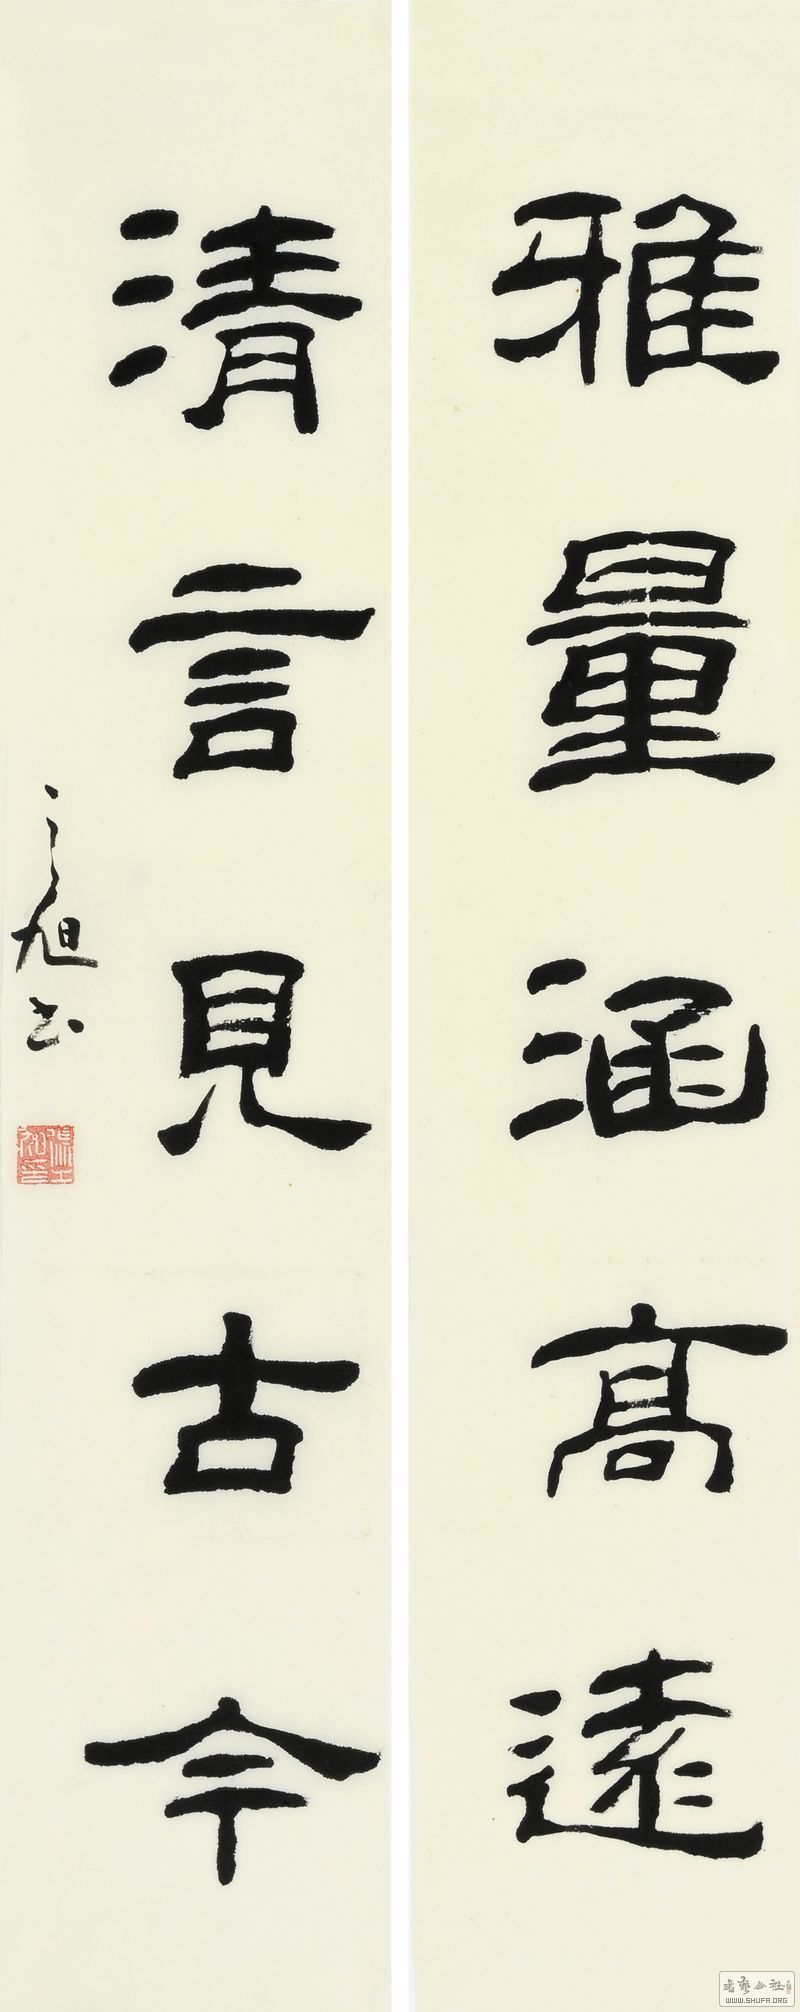 雅量涵高遠
清言見古今
之旭書
書藝公社
WWW.SHUFA.ORG